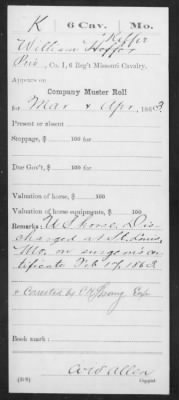 K 6 Cav. Mo.
Kiffer
William Hoffer
Priv., Co. I, 6 Reg't Missouri Cavalry.
Appears on
Company Muster Roll
for Mar & Apr, 1863.
Present or absent
Stoppage, $ 100 for
Due Gov't, $ 100 for
Valuation of horse, $ 100
Valuation of horse equipments, $ 100
Remarks: U S horse. Dis-
charged at St. Louis,
Mo, on surgeon's cer-
tificate Feb 17, 1863
Book mark:
Allen
(598) Copyist.